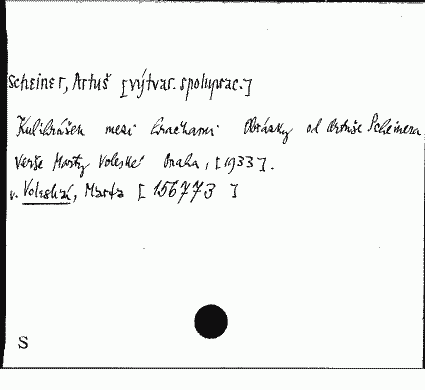 Scheiner, Artuš [výtvar. spoluprac.]
Kulihrášek mezi hračkami Obrázky od Artuše Scheinera
Verše Marty Voleské Praha, [1933].
v. Voleská, Marta [156773]
S